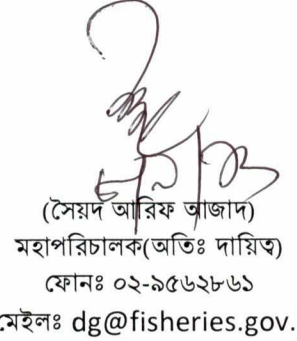 (সৈয়দ আরিফ আজাদ)
মহাপরিচালক(অতিঃ দায়িত্ব)
ফোনঃ ০২-৯৫৬২৮৬১
মেইলঃ dg@fisheries.gov.